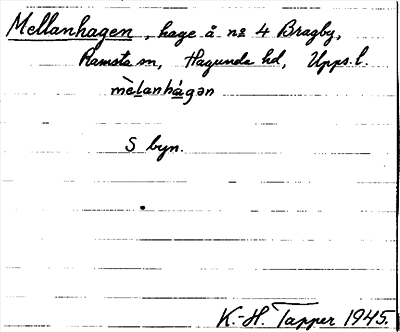 Mellanhagen, hage å nº 4 Bragby,
Ramsta sn, Hagunda hd, Upps. l.
mèlanhágən
S byn.
K.-H. Tapper 1945.